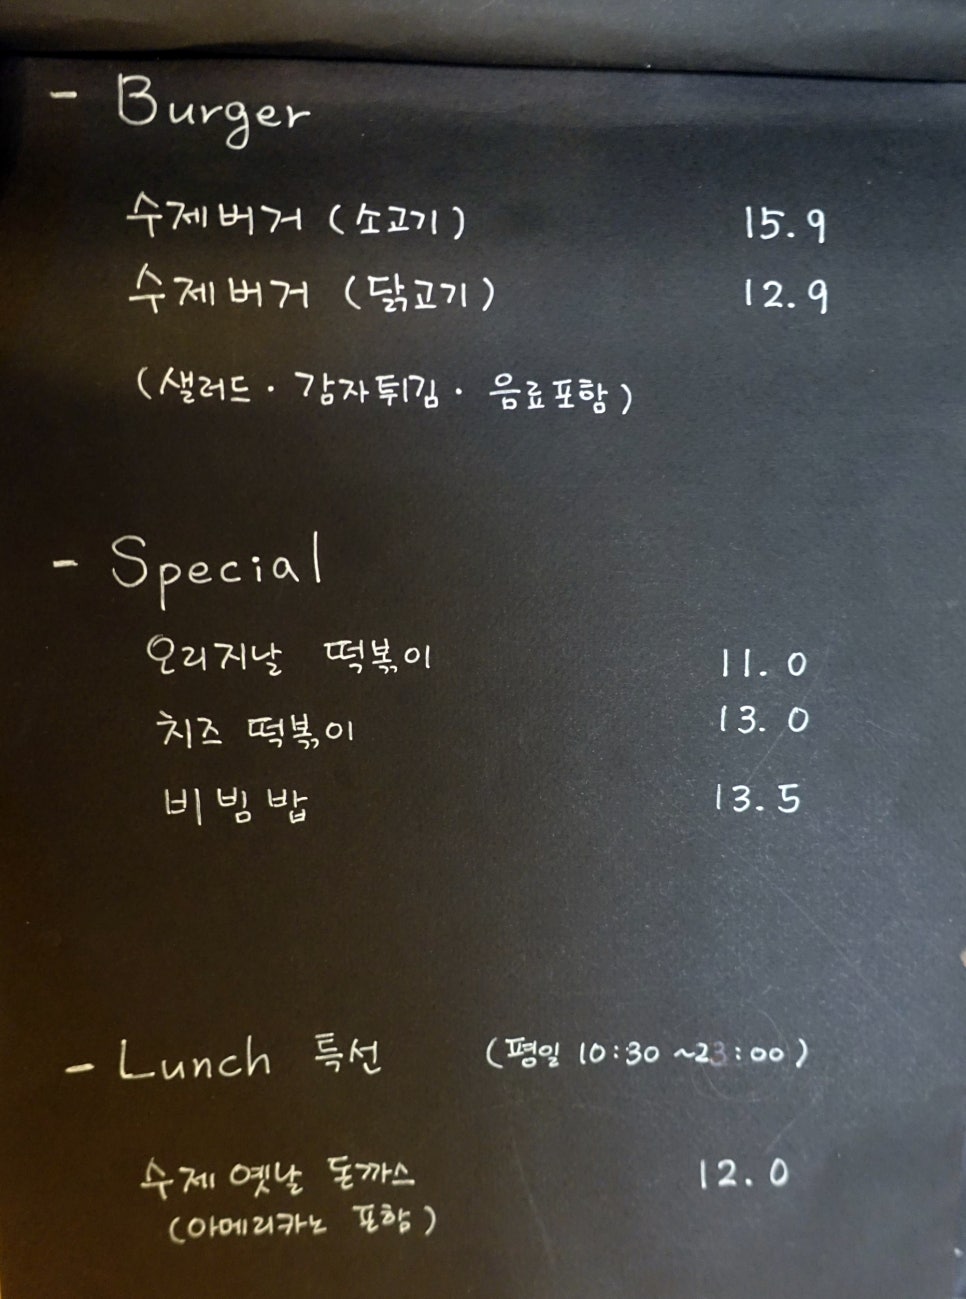 - Burger
수제버거 (소고기) 15.9
수제버거 (닭고기) 12.9
(샐러드 · 감자튀김 · 음료포함)
- Special
오리지날 떡볶이 11.0
치즈 떡볶이 13.0
비빔밥 13.5
- Lunch 특선 (평일 10:30 ~23:00)
수제 옛날 돈까스 12.0
(아메리카노 포함)